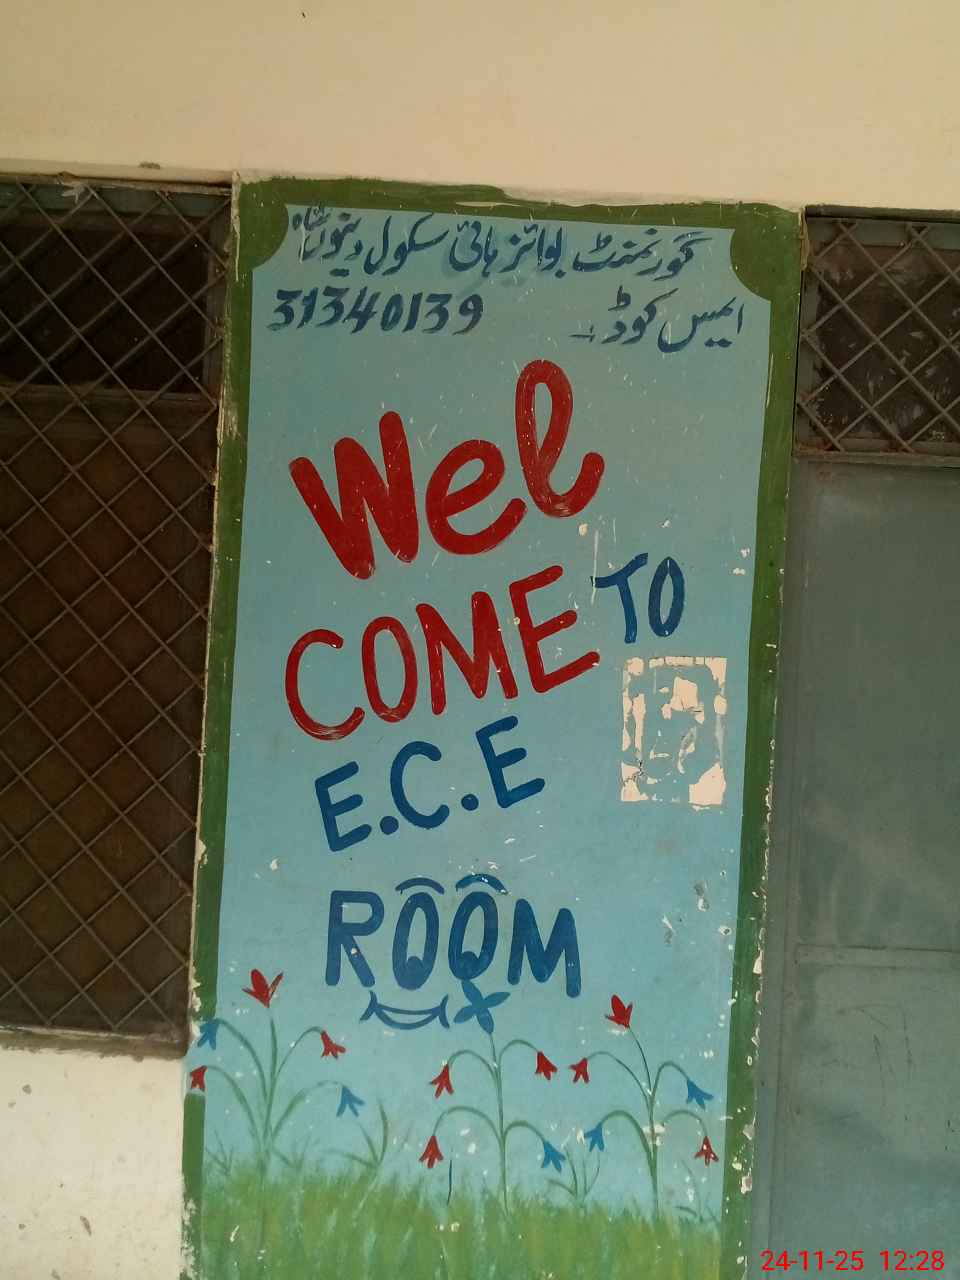 گورنمنٹ بوائز ہائی سکول
ایمس کوڈ۔ 31340139
Wel
COME TO
E.C.E
ROOM
24-11-25 12:28